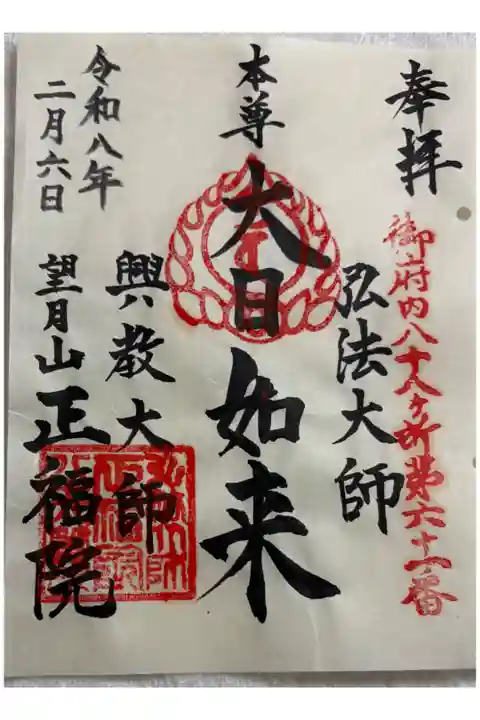 奉拝
御府内八十八ヶ所第六十一番
弘法大師
本尊
大日如来
興教大師
望月山
正福院
令和八年
二月六日